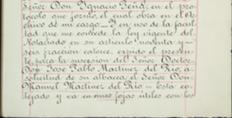 Señor Don Ygnacio Peña, en el pro
tocolo que formó, el cual obra en el Ar
chivo de mi cargo.- Y en uso de la facul
tad que me concede la ley vigente del
Notariado en su artículo noventa y
seis fracción catorce, expido el presen
te para la sucesión del Señor Doctor
Don José Pablo Martínez del Río, a
solicitud de su albacea, el Señor Don
Manuel Martínez del Río - Está co
tejado y va en fojas útiles con los